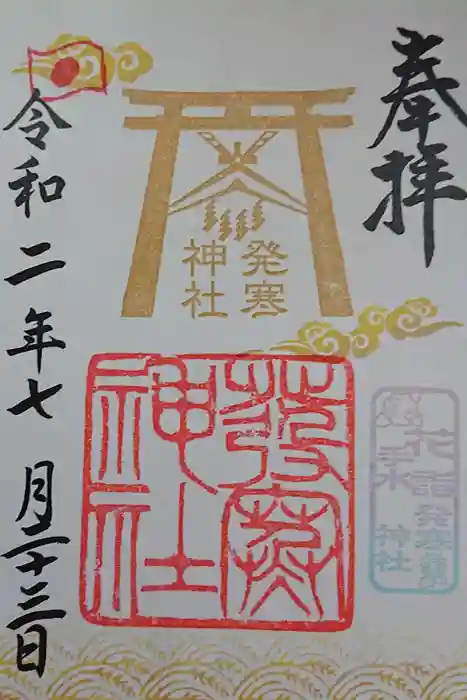 奉拝
発寒
神社
發寒
神社
花詣
発寒
神社
令和二年七月二十三日